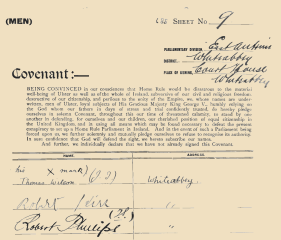 (MEN)
SHEET No 9
PARLIAMENTARY DIVISION, East Antrim
Whiteabbey
PLACE OF SIGNING, Court House
Whiteabbey
Covenant:—
BEING CONVINCED in our consciences that Home Rule would be disastrous to the material
well-being of Ulster as well as of the whole of Ireland, subversive of our civil and religious freedom,
destructive of our citizenship, and perilous to the unity of the Empire, we, whose names are under-
written, men of Ulster, loyal subjects of His Gracious Majesty King George V., humbly relying on
the God whom our fathers in days of stress and trial confidently trusted, do hereby pledge
ourselves in solemn Covenant, throughout this our time of threatened calamity, to stand by one
another in defending, for ourselves and our children, our cherished position of equal citizenship in
the United Kingdom and in using all means which may be found necessary to defeat the present
conspiracy to set up a Home Rule Parliament in Ireland. And in the event of such a Parliament being
forced upon us, we further solemnly and mutually pledge ourselves to refuse to recognise its authority.
In sure confidence that God will defend the right, we hereto subscribe our names.
And further, we individually declare that we have not already signed this Covenant.
NAME. ADDRESS.
his
X mark)
Thomas Whiteabbey
Robert "
Robert "